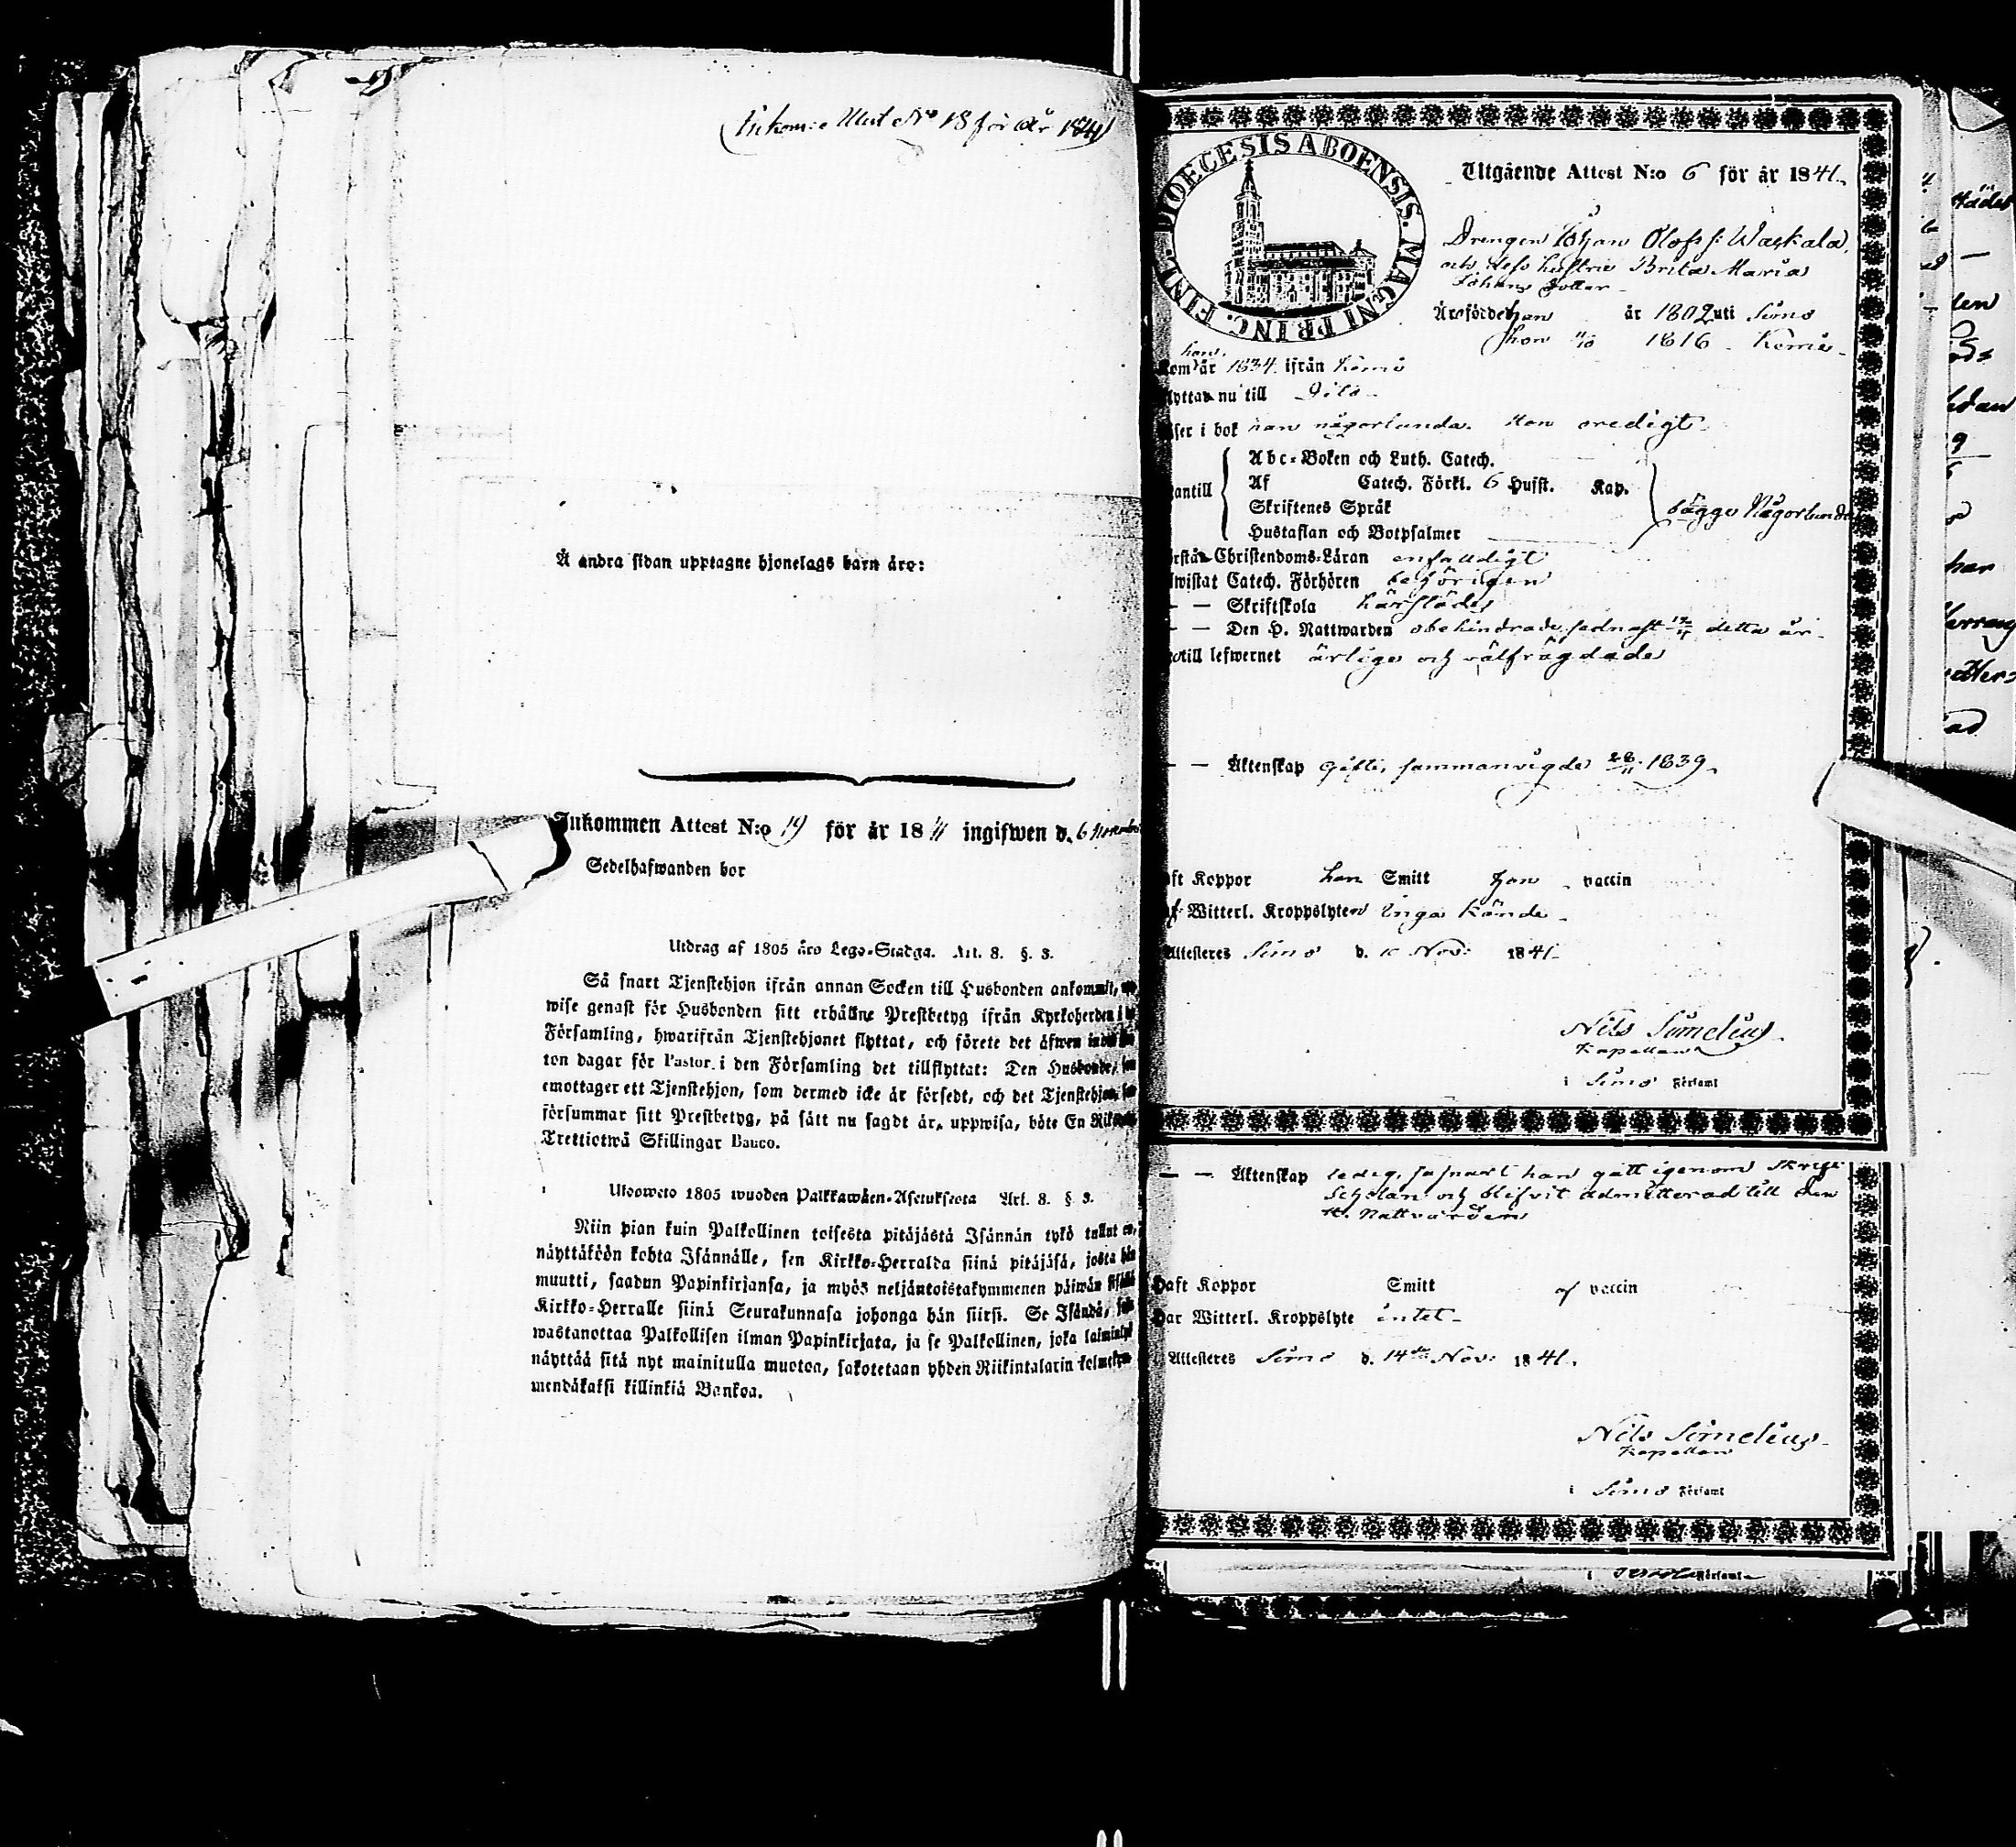 Inkom: Attest No 18 för år 1841
Å andra sidan upptagne hjonelags barn äro:
Inkommen Attest N:o 19 för år 1841 ingifwen d. 6 November
Sedelhafwanden bor
Utdrag af 1805 års Lego-Stadga. Art. 8. §. 3.
Så snart Tjenstehjon ifrån annan Socken till Husbonden ankommit,
wise genast för Husbonden sitt erhållne Prestbetyg ifrån Kyrkoherden i
Församling, hwarifrån Tjenstehjonet flyttat, och förete det äfwen
ton dagar för Pastor i den Församling det tillflyttat: Den Husbonde,
emottager ett Tjenstehjon, som dermed icke är försedt, och det Tjenstehjon,
försummar sitt Prestbetyg, på sätt nu sagdt är, uppwisa, böte En
Trettiotwå Skillingar Banco.
Ulosweto 1805 wuoden Palkkawäen-Asetuksesta Art. 8. §. 3.
Niin pian kuin Palkollinen toisesta pitäjästä Isännän tykö tullut on,
näyttäköön kohta Isännälle, sen Kirkko-Herralda siinä pitäjäsä, josta hän
muutti, saadun Papinkirjansa, ja myös neljäntoistakymmenen päiwän sisällä
Kirkko-Herralle siinä Seurakunnasa johonga hän siirsi. Se Isändä,
wastanottaa Palkollisen ilman Papinkirjata, ja se Palkollinen, joka laiminlyö
näyttää sitä nyt mainitulla muotoa, sakotetaan yhden Riikintalarin kolme
mendäkaksi killinkiä Bankoa.
DIOECESIS ABOENSIS. MAGNI PRINC. FINL.
Utgående Attest N:o 6 för år 1841.
Drengen Johan Olofs s: Waskala
och dess hustru Brita Maria
Johans dotter
Äro födde han år 1802 uti Simo
hon 1816 Kemi
hon
kom år 1834 ifrån Kemi
flyttar nu till
läser i bok han någorlunda. Hon oredigt
Abc-Boken och Luth. Catech.
utantill Af Catech. Förkl. 6 Hufst. Kap. bägge Någorlunda
Skriftenes Språk
Hustaflan och Botpsalmer
förstå Christendoms-Läran enfalldigt
bewistat Catech. Förhören behörigen
— — Skriftskola härstädes
— — Den H. Nattwarden obehindrade sednast detta år.
till lefwernet ärlige och välfrägdade
— — Äktenskap gifte, sammanvigde 28/11 1839.
haft Koppor han Smitt hon vaccin
af Witterl. Kroppslyten inga kände
Attesteres Simo d. Nov: 1841.
Nils Simelius
Kapellan
i Simo Församl
— — Äktenskap ledig, så snart han gått igenom Skrift
Scholan och blifvit admitterad till den
H. Nattvarden
Haft Koppor Smitt af vaccin
Har Witterl. Kroppslyte intet
Attesteres Simo d. 14de Nov: 1841.
Nils Simelius
Kapellan
i Simo Församl